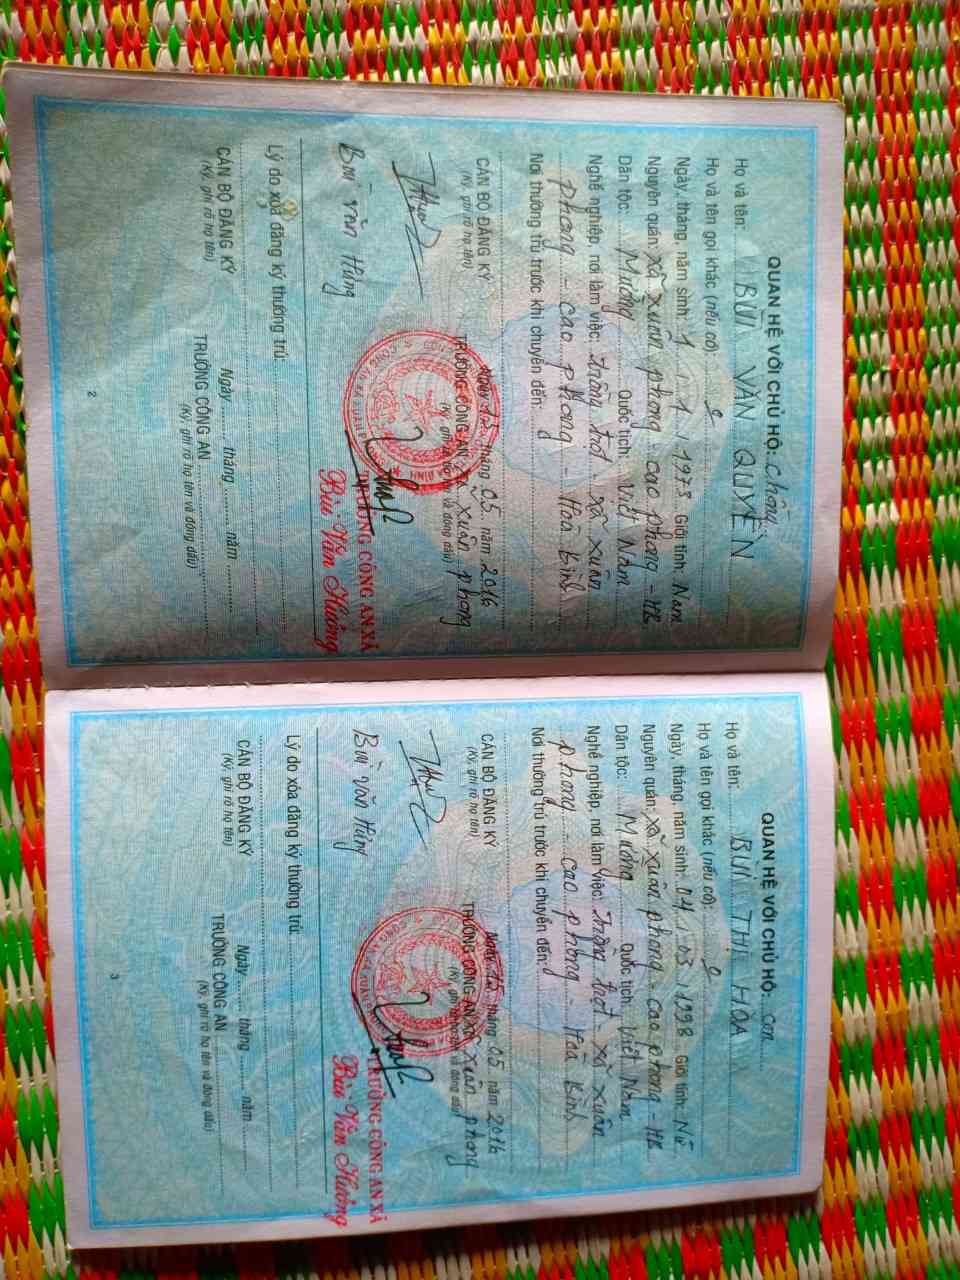 QUAN HỆ VỚI CHỦ HỘ: chồng
Họ và tên: BÙI VĂN QUYỀN
Họ và tên gọi khác (nếu có):
Ngày, tháng, năm sinh: 1 / 1 / 1973 Giới tính: Nam
Nguyên quán: xã xuân phong - cao phong - HB
Dân tộc: Mường Quốc tịch: Việt Nam
Nghề nghiệp, nơi làm việc: trồng trọt - xã xuân
phong - cao phong - Hòa Bình
Nơi thường trú trước khi chuyển đến:
Ngày 15 tháng 05 năm 2016
CÁN BỘ ĐĂNG KÝ
(Ký, ghi rõ họ tên)
TRƯỞNG CÔNG AN xã xuân phong
(Ký, ghi rõ họ tên và đóng dấu)
TRƯỞNG CÔNG AN XÃ
Bùi văn Hùng
Bùi Văn Hưởng
Lý do xóa đăng ký thường trú:
Ngày tháng năm
CÁN BỘ ĐĂNG KÝ
(Ký, ghi rõ họ tên)
TRƯỞNG CÔNG AN
(Ký, ghi rõ họ tên và đóng dấu)
2
QUAN HỆ VỚI CHỦ HỘ: con
Họ và tên: BÙI THỊ HOA
Họ và tên gọi khác (nếu có):
Ngày, tháng, năm sinh: 04 / 03 / 1998 Giới tính: Nữ
Nguyên quán: xã xuân phong - cao phong - HB
Dân tộc: Mường Quốc tịch: Việt Nam
Nghề nghiệp, nơi làm việc: trồng trọt - xã xuân
phong - cao phong - Hòa Bình
Nơi thường trú trước khi chuyển đến:
Ngày 15 tháng 05 năm 2016
CÁN BỘ ĐĂNG KÝ
(Ký, ghi rõ họ tên)
TRƯỞNG CÔNG AN xã xuân phong
(Ký, ghi rõ họ tên và đóng dấu)
TRƯỞNG CÔNG AN XÃ
Bùi văn Hùng
Bùi Văn Hưởng
Lý do xóa đăng ký thường trú:
Ngày tháng năm
CÁN BỘ ĐĂNG KÝ
(Ký, ghi rõ họ tên)
TRƯỞNG CÔNG AN
(Ký, ghi rõ họ tên và đóng dấu)
3